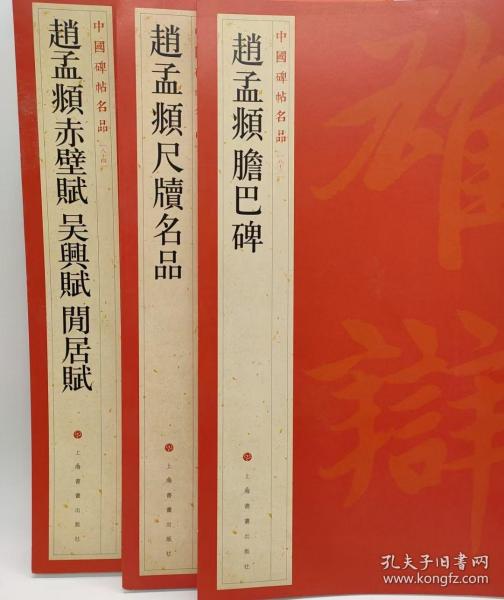 中國碑帖名品
[八十四]
趙孟頫赤壁賦 吴興賦 閒居賦
上海書畫出版社
趙孟頫尺牘名品
上海書畫出版社
中國碑帖名品
趙孟頫膽巴碑
上海書畫出版社
雄
辯
孔夫子旧书网
www.kongfz.com